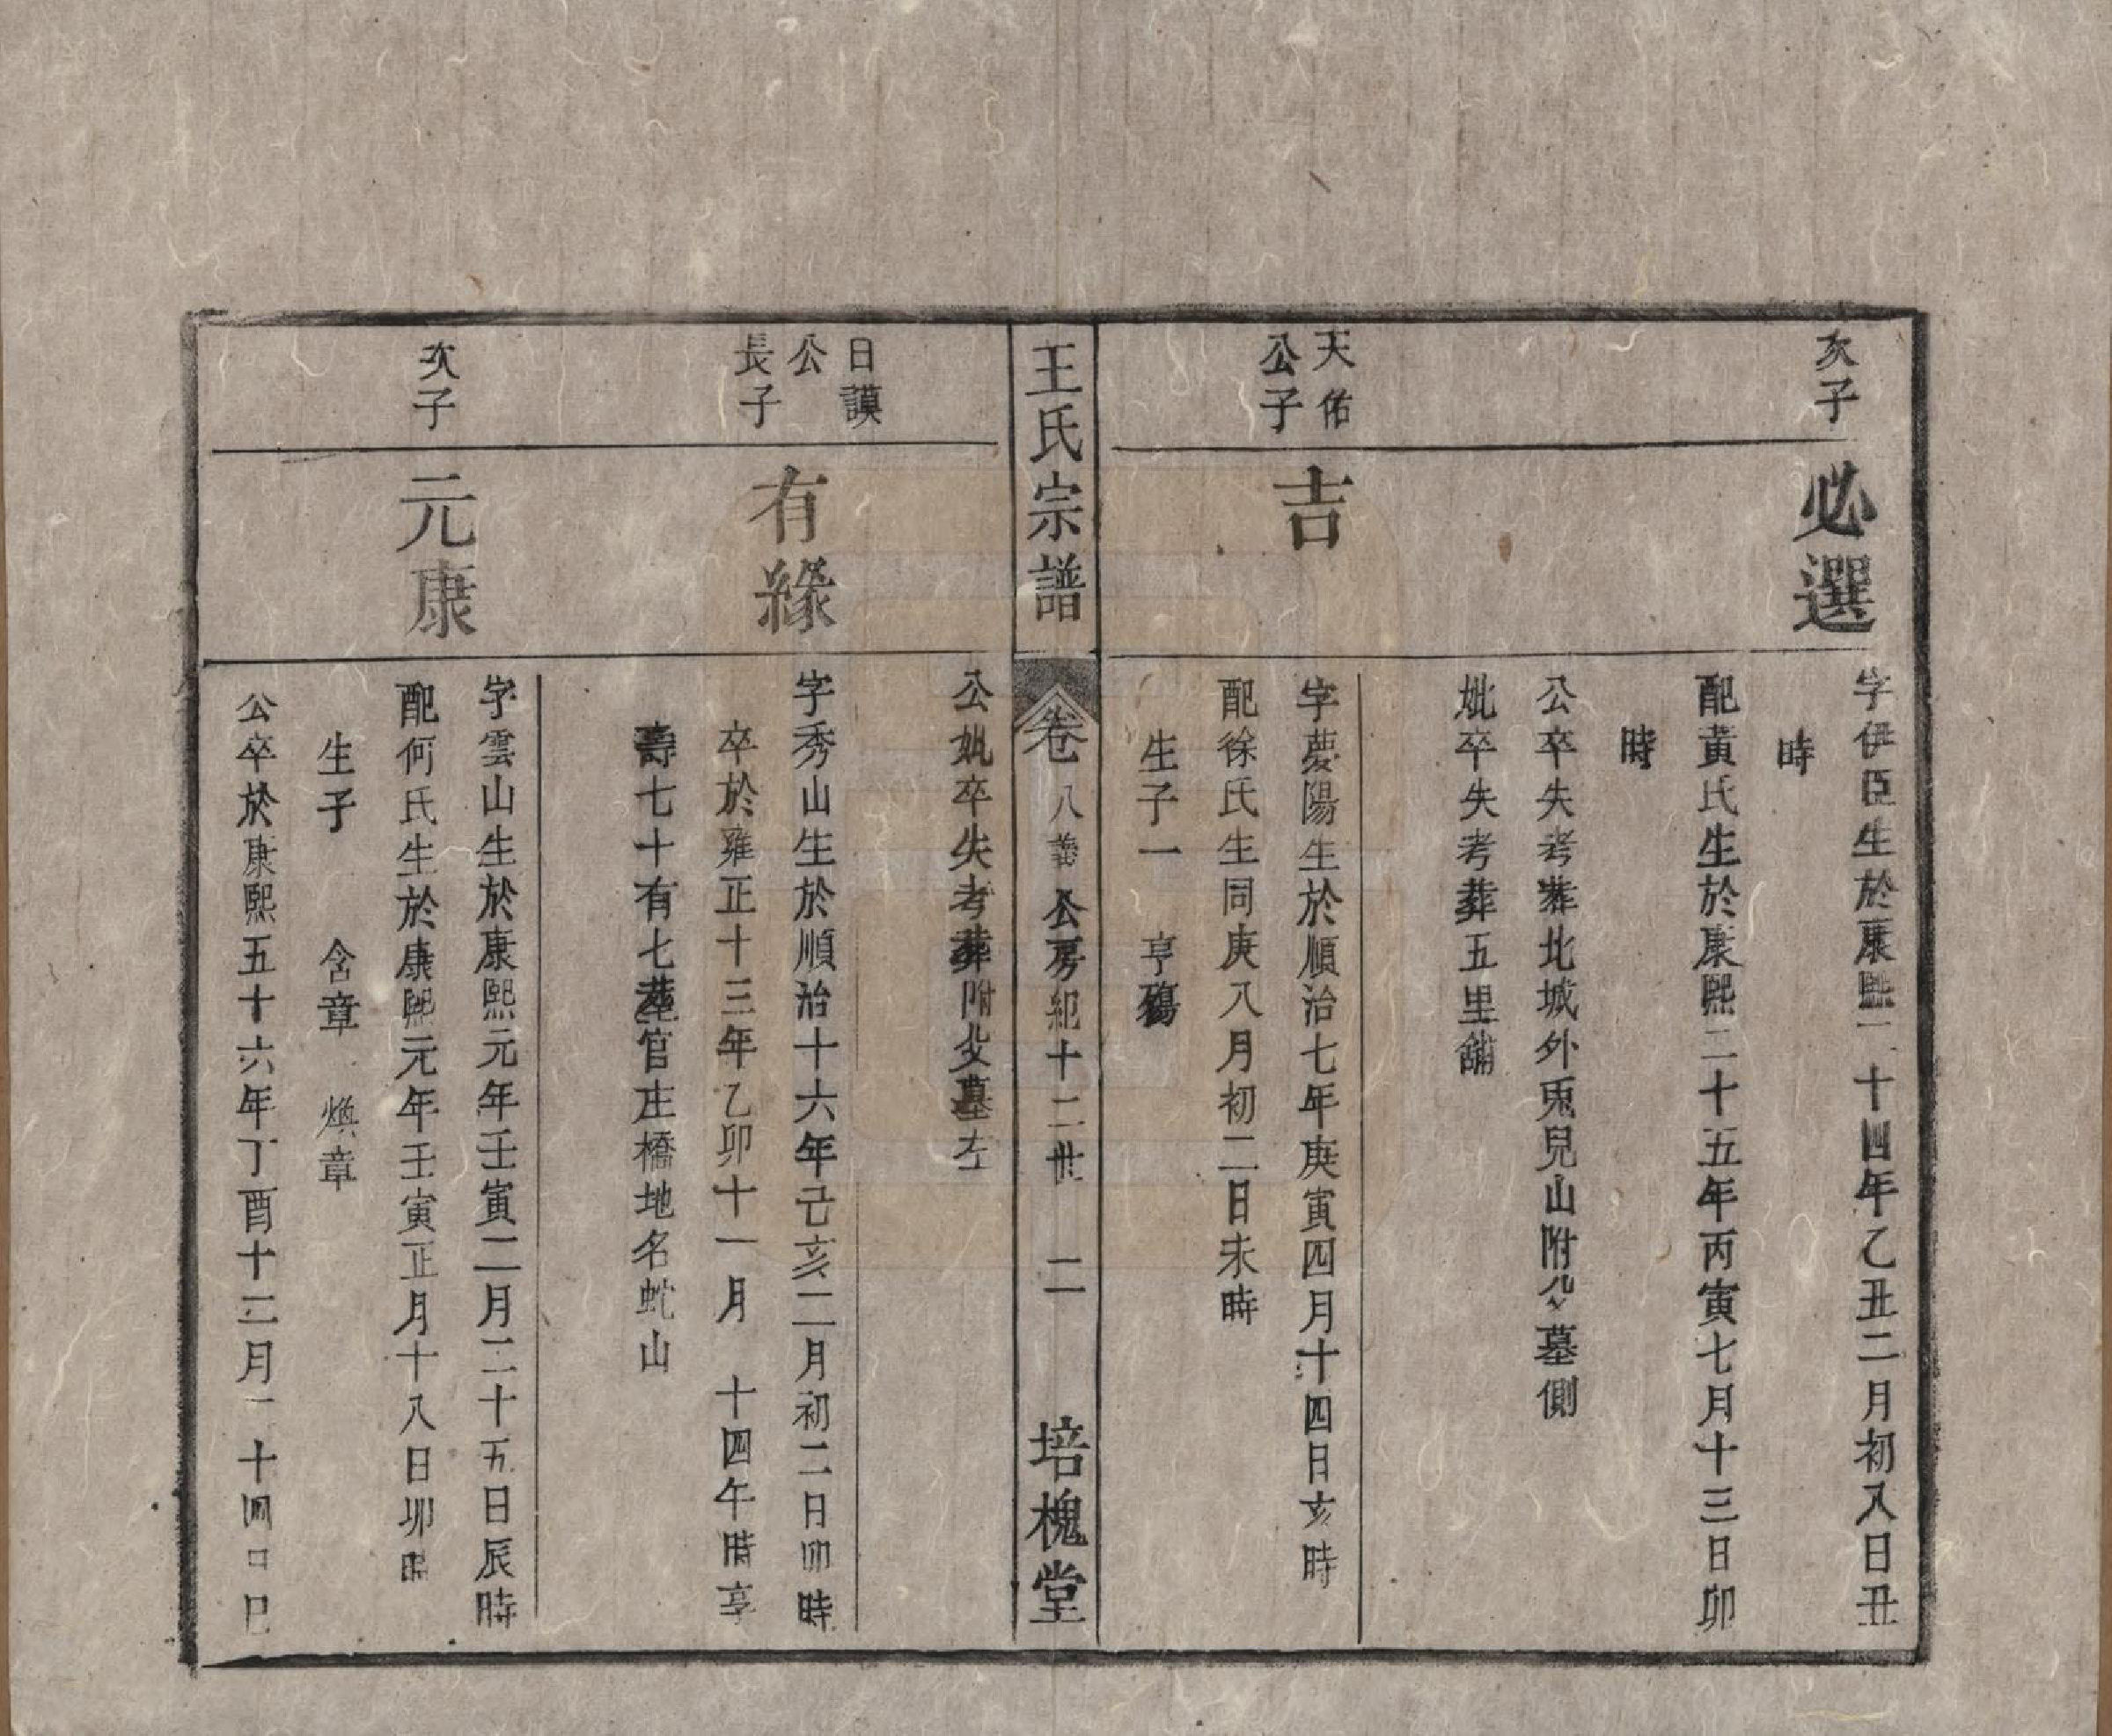 次子
必選
字伊臣生於康熙二十四年乙丑二月初八日丑
時
配黃氏生於康熙二十五年丙寅七月十三日卯
時
公卒失考葬北城外兎兒山附父墓側
妣卒失考葬五里舖
天佑
公子
吉
字夢陽生於順治七年庚寅四月十四日亥時
配徐氏生同庚八月初二日未時
生子一 亨殤
王氏宗譜
卷八 公房紀十二世 二 培槐堂
公妣卒失考葬附父墓左
日謨
公
長子
有緣
字秀山生於順治十六年己亥二月初二日卯時
卒於雍正十三年乙卯十一月 十四午時享
壽七十有七葬官庄橋地名蛇山
次子
元康
字雲山生於康熙元年壬寅二月二十五日辰時
配何氏生於康熙元年壬寅正月十八日卯時
生子 含章 煥章
公卒於康熙五十六年丁酉十二月二十四日巳